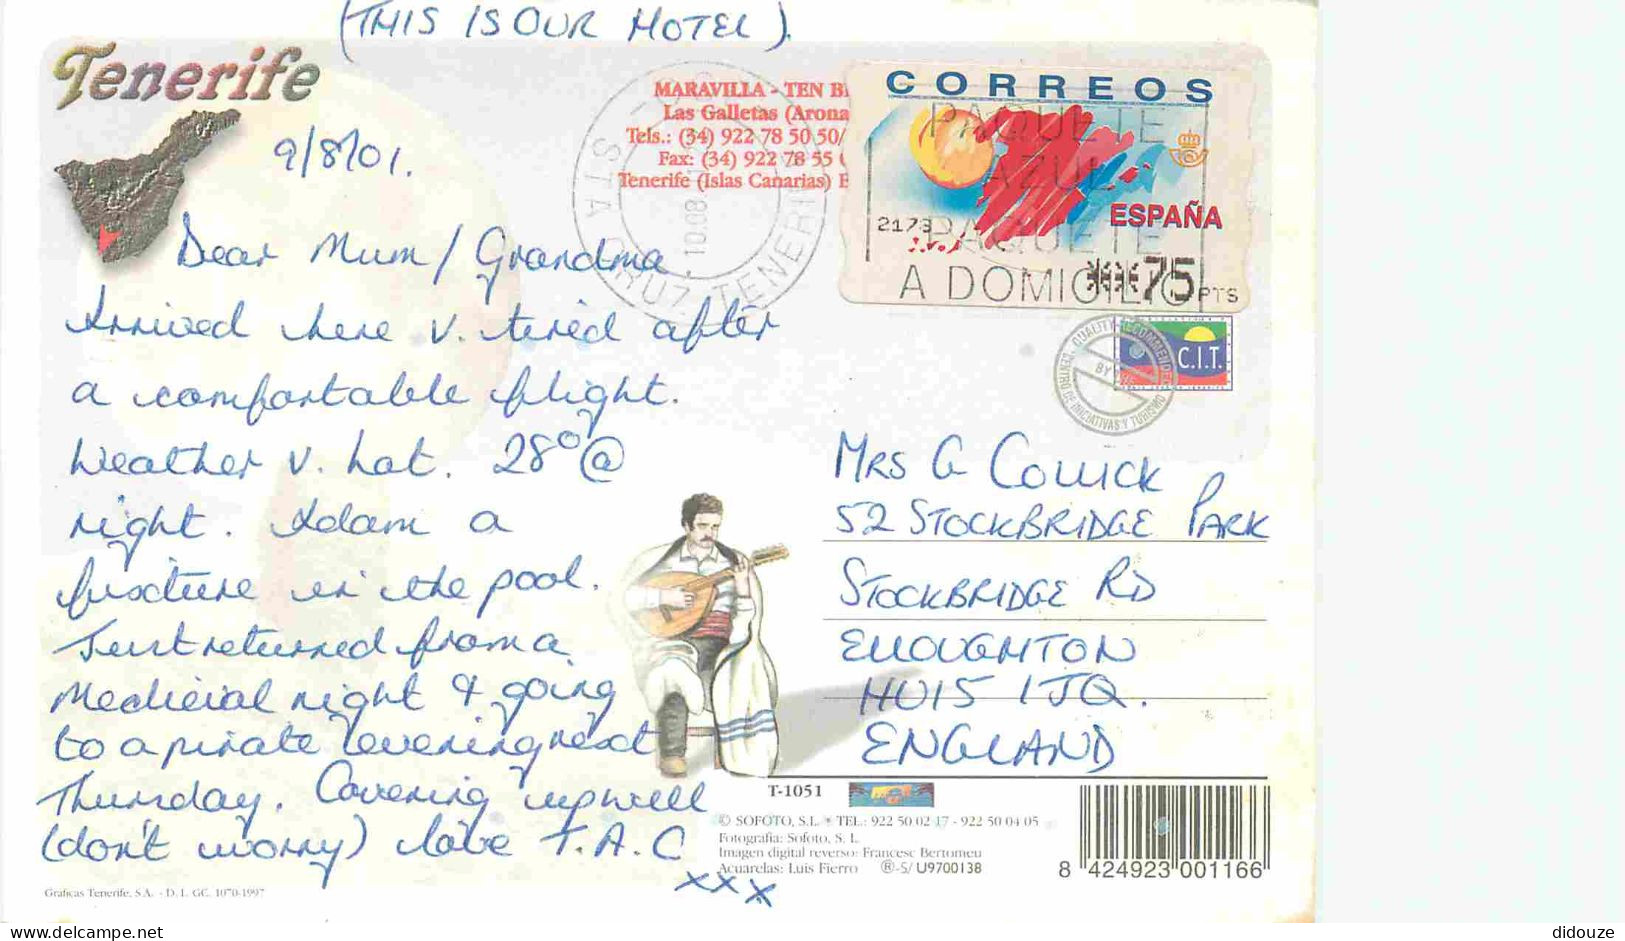 (THIS IS OUR HOTEL).
Tenerife
9/8/01.
MARAVILLA - TEN B
Las Galletas (Arona
Tels.: (34) 922 78 50 50/
Fax: (34) 922 78 55
Tenerife (Islas Canarias) E
STA CRUZ TENERI
10.08
CORREOS
PAQUETE
AZUL
PAQUETE
A DOMICILIO
2173
ESPAÑA
***75 PTS
QUALITY RECOMMENDED BY THE
CENTRO DE INICIATIVAS Y TURISMO
C.I.T.
Dear Mum / Grandma
Arrived here v. tired after
a comfortable flight.
Weather v. hot. 28° @
night. Adam a
fixture in the pool.
Just returned from a
Medieval night & going
to a pirate evening next
Thursday. Covering up well
(don't worry) love T.A.C
xxx
MRS G COWICK
52 STOCKBRIDGE PARK
STOCKBRIDGE RD
ELLOUGHTON
HU15 1JQ.
ENGLAND
T-1051
© SOFOTO, S.L. * TEL.: 922 50 02 17 - 922 50 04 05
Fotografía: Sofoto, S. L.
Imagen digital reverso: Francesc Bertomeu
Acuarelas: Luis Fierro ®-S/ U9700138
8 424923 001166
Gráficas Tenerife, S.A. - D. L. GC. 1070-1997
didouze